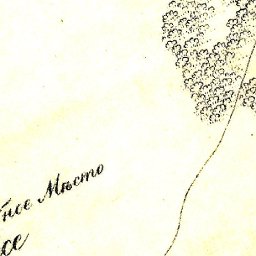 ное Мѣсто
се